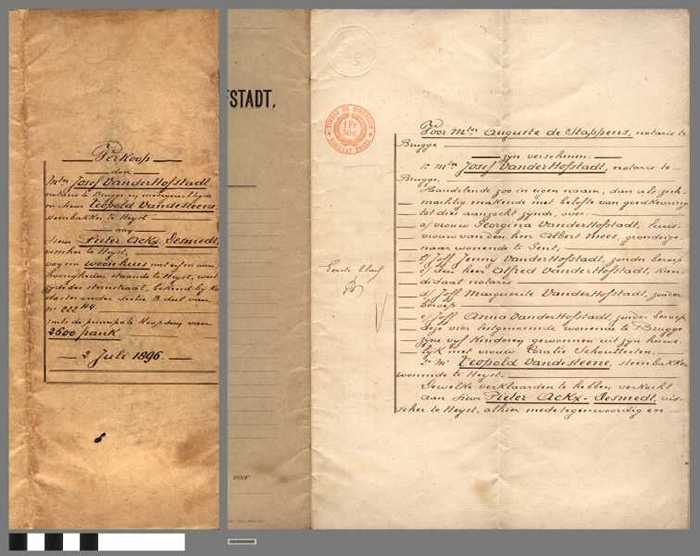 Verkoop
door
Mter Josef VanderHofstadt
notaris te Brugge en
en heer Leopold Vandesteene
steenbakker te Heyst
aan
heer Pieter Ackx-Desmedt
visscher te Heyst,
van een woonhuis met erf en
staande te Heyst, west
zijde der statiestraat, bekend bij ka-
daster onder sectie B deel van
nr 222
mits de principale koopsom van
2600 frank
2 Juli 1896
FSTADT,
Voor Mter Auguste de Stappens, notaris te
Brugge
zijn verschenen:
1o Mter Josef VanderHofstadt, notaris te
Brugge
Handelende zoo in eigen naam, dan als zich
machtig makende met belofte van goedkeuring
tot dies aanzocht zijnde, over
a/ vrouw Georgina VanderHofstadt, huis-
vrouw van den heer Albert Mees, grondeige-
naar wonende te Gent,
b/ Joff. Jenny VanderHofstadt, zonder beroep
c/ den heer Alfred VanderHofstadt, kan-
didaat notaris
d/ Joff. Marguerite VanderHofstadt, zonder
beroep
e/ Joff. Anna VanderHofstadt, zonder beroep
deze vier letstgenoemde wonende te Brugge
zijne vijf kinderen gewonnen uit zijn huwe-
lijk met vrouw Coralie Scheutteten.
2o Mr Leopold Vandesteene, steenbakker
wonende te Heyst.
Dewelke verklaarden te hebben verkocht
aan heer Pieter Ackx-Desmedt, vis-
scher te Heyst, alhier medetegenwoordig en
Eerste blad